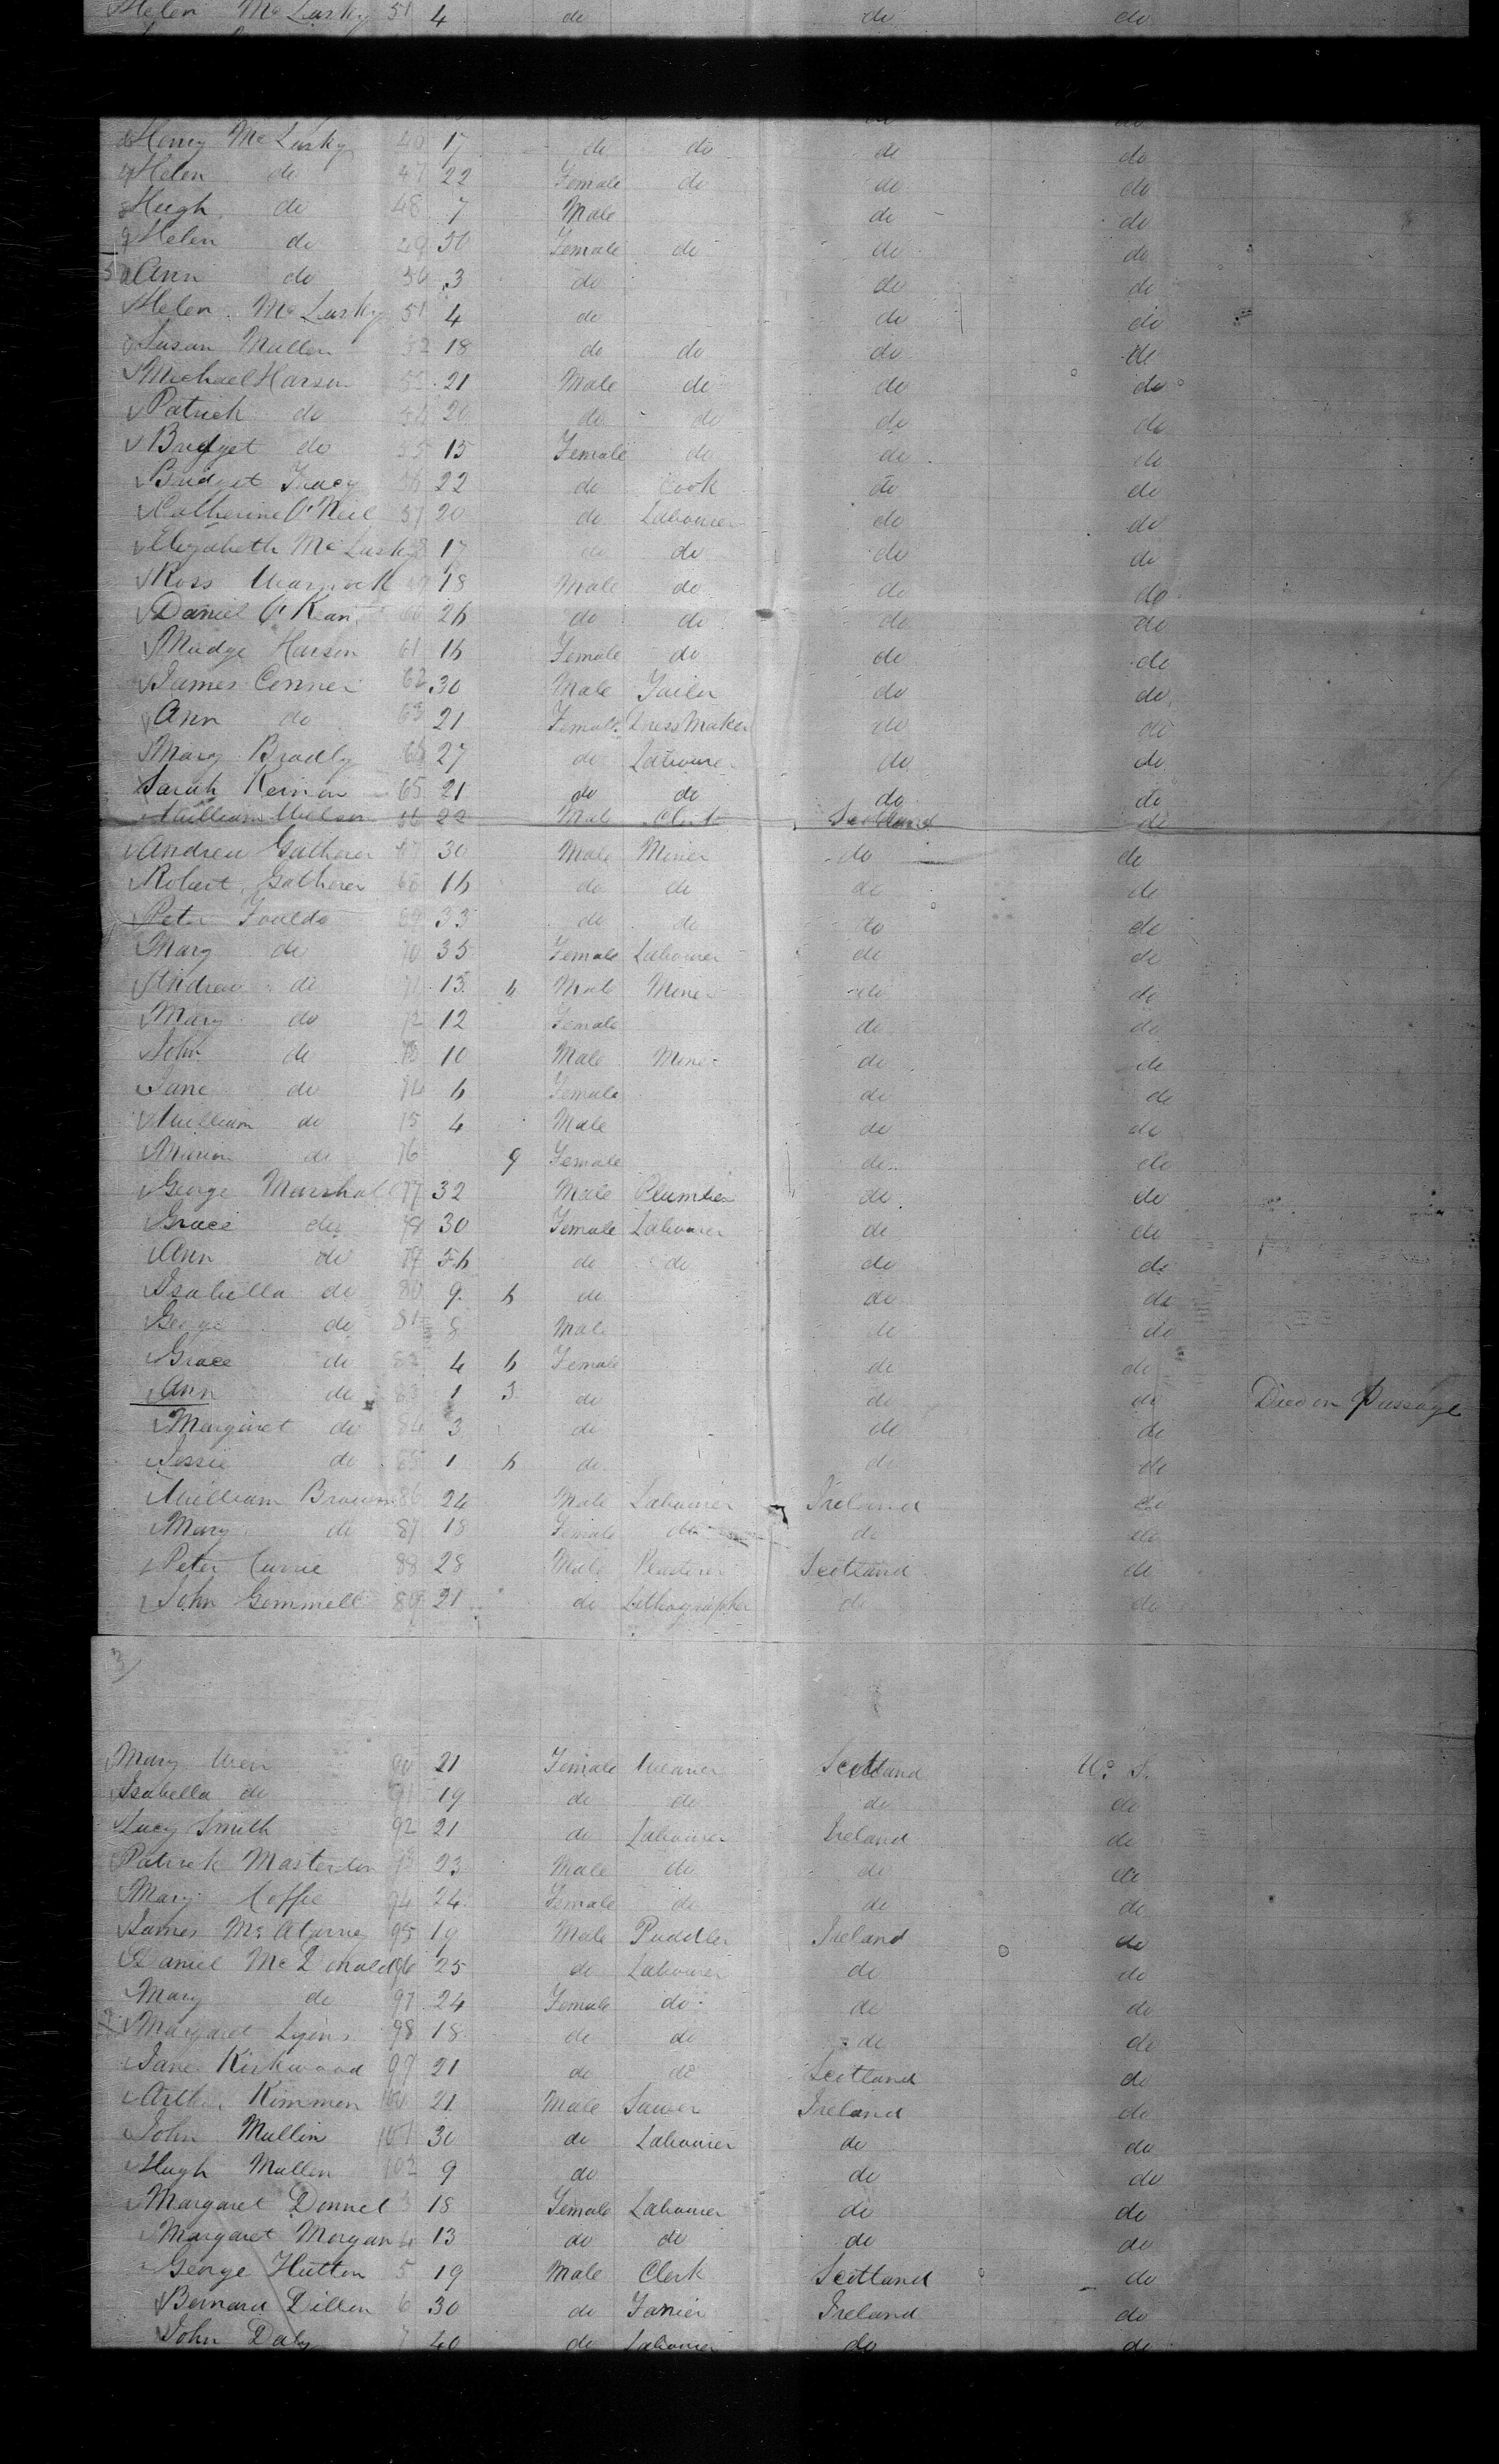 Helen McLusky 51 4 do do do
Henry McLusky 17 do do do do
Helen do 47 22 Female do do do
Hugh do 48 7 Male do do
Helen do 49 50 Female do do do
Ann do 50 3 do do do
Helen McLusky 51 4 do do do
Susan Mullen 52 18 do do do do
Michael Harson 53 21 Male do do do
Patrick do 54 20 do do do do
Bridget do 55 15 Female do do do
Bridget Tracy 56 22 do Cook do do
Catherine O'Neil 57 20 do Labourer do do
Elizabeth McLusky 58 17 do do do do
Ross 59 18 Male do do do
Daniel O'Kean 60 26 do do do do
Madge Harson 61 16 Female do do do
James Conner 62 30 Male Tailor do do
Ann do 63 21 Female Dress Maker do do
Mary Bradly 64 27 do Labourer do do
Sarah Kernon 65 21 do do do do
William Wilson 66 22 Male Clerk Scotland do
Andrew Gatherer 67 30 Male Miner do do
Robert Gatherer 68 16 do do do do
Peter Foulds 69 33 do do do do
Mary do 70 35 Female Labourer do do
Andrew do 71 13 6 Male Miner do do
Mary do 72 12 Female do do
John do 73 10 Male Miner do do
Jane do 74 6 Female do do
William do 75 4 Male do do
Marion do 76 9 Female do do
George Marshall 77 32 Male Plumber do do
Grace do 78 30 Female Labourer do do
Ann do 79 56 do do do do
Isabella do 80 9 6 do do do
George do 81 8 Male do do
Grace do 82 4 6 Female do do
Ann do 83 1 3 do do do Died on Passage
Margaret do 84 3 do do do
Jessie do 85 1 6 do do do
William Brown 86 24 Male Labourer Ireland do
Mary do 87 18 Female do do do
Peter Currie 88 28 Male Plasterer Scotland do
John Gemmell 89 21 do Lithographer do do
3/
Mary Weir 90 21 Female Weaver Scotland U. S.
Isabella do 91 19 do do do do
Lucy Smith 92 21 do Labourer Ireland do
Patrick Masterton 93 23 Male do do do
Mary Coffie 94 24 Female do do do
James McAtarney 95 19 Male Puddler Ireland do
Daniel McDonald 96 25 do Labourer do do
Mary do 97 24 Female do do do
Margaret Lyons 98 18 do do do do
Jane Kirkwood 99 21 do do Scotland do
Arthur Kimmen 100 21 Male Sawer Ireland do
John Mullin 101 30 do Labourer do do
Hugh Mullen 102 9 do do do
Margaret Donnel 3 18 Female Labourer do do
Margaret Morgan 4 13 do do do do
George Hutton 5 19 Male Clerk Scotland do
Bernard Dillon 6 30 do Tanier Ireland do
John Daly 7 40 do Labourer do do